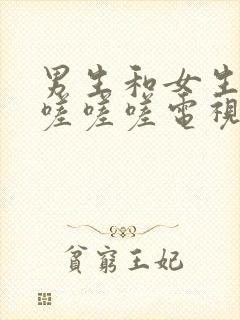 男生和女生
嗟嗟嗟電視
貧窮王妃